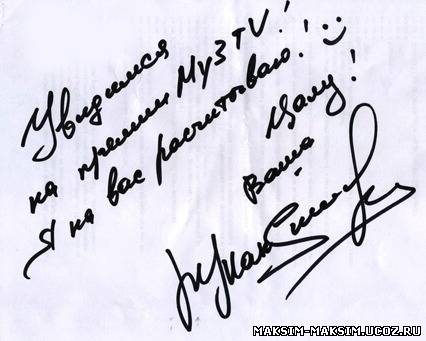 Увидимся
на премии МузTV!
Я на вас расчитываю!
Целую!
Ваша
MAKSIM-MAKSIM.UCOZ.RU